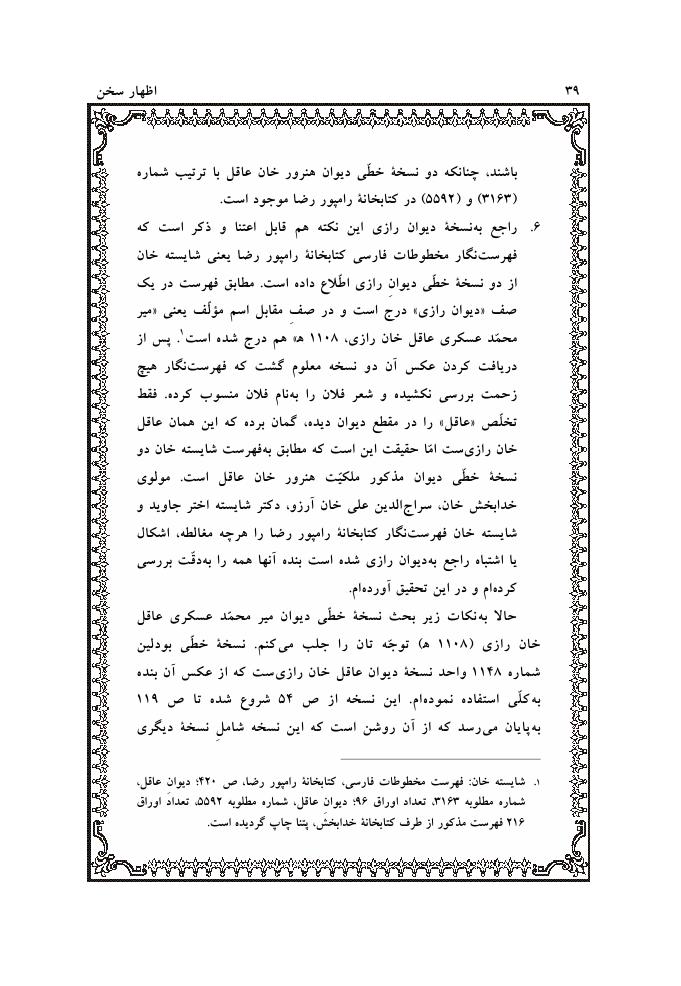 ۳۹ اظهار سخن
باشند، چنانکه دو نسخهٔ خطّی دیوان هنرور خان عاقل با ترتیب شماره
(۳۱۶۳) و (۵۵۹۲) در کتابخانهٔ رامپور رضا موجود است.
۶. راجع به‌نسخهٔ دیوان رازی این نکته هم قابل اعتنا و ذکر است که
فهرست‌نگار مخطوطات فارسی کتابخانهٔ رامپور رضا یعنی شایسته خان
از دو نسخهٔ خطّی دیوانِ رازی اطّلاع داده است. مطابق فهرست در یک
صف «دیوان رازی» درج است و در صفِ مقابل اسم مؤلّف یعنی «میر
محمّد عسکری عاقل خان رازی، ۱۱۰۸ ه‍» هم درج شده است۱. پس از
دریافت کردن عکس آن دو نسخه معلوم گشت که فهرست‌نگار هیچ
زحمت بررسی نکشیده و شعر فلان را به‌نام فلان منسوب کرده. فقط
تخلّص «عاقل» را در مقطع دیوان دیده، گمان برده که این همان عاقل
خان رازی‌ست امّا حقیقت این است که مطابق به‌فهرست شایسته خان دو
نسخهٔ خطّی دیوان مذکور ملکیّت هنرور خان عاقل است. مولوی
خدابخش خان، سراج‌الدین علی خان آرزو، دکتر شایسته اختر جاوید و
شایسته خان فهرست‌نگار کتابخانهٔ رامپور رضا را هرچه مغالطه، اشکال
یا اشتباه راجع به‌دیوان رازی شده است بنده آنها همه را به‌دقّت بررسی
کرده‌ام و در این تحقیق آورده‌ام.
حالا به‌نکات زیر بحث نسخهٔ خطّی دیوان میر محمّد عسکری عاقل
خان رازی (۱۱۰۸ ه‍) توجّه تان را جلب می‌کنم. نسخهٔ خطّی بودلین
شماره ۱۱۴۸ واحد نسخهٔ دیوان عاقل خان رازی‌ست که از عکس آن بنده
به‌کلّی استفاده نموده‌ام. این نسخه از ص ۵۴ شروع شده تا ص ۱۱۹
به‌پایان می‌رسد که از آن روشن است که این نسخه شاملِ نسخهٔ دیگری
۱. شایسته خان: فهرست مخطوطات فارسی، کتابخانهٔ رامپور رضا، ص ۴۲۰؛ دیوان عاقل،
شماره مطلوبه ۳۱۶۳، تعداد اوراق ۹۶؛ دیوان عاقل، شماره مطلوبه ۵۵۹۲، تعداد اوراق
۲۱۶ فهرست مذکور از طرف کتابخانهٔ خدابخش، پتنا چاپ گردیده است.